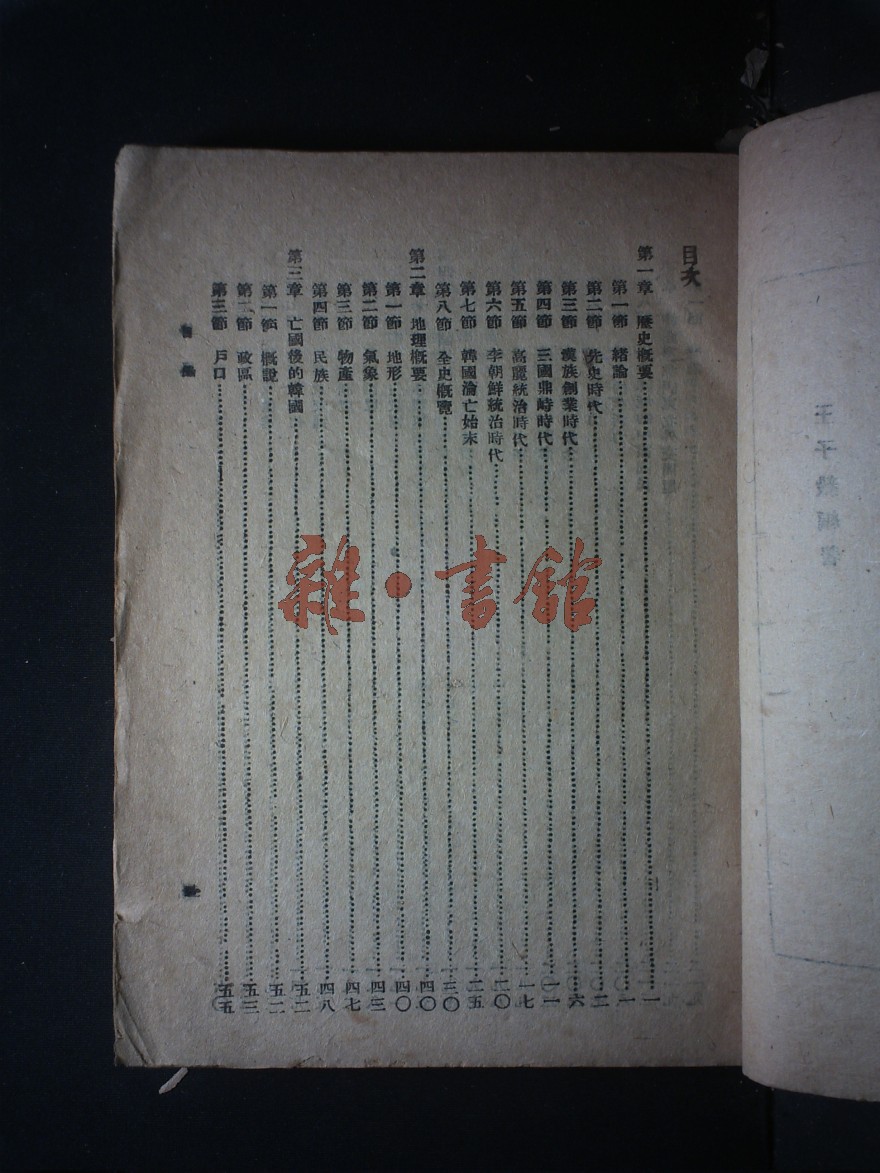 目次
第一章 歷史概要 一
第一節 緒論 一
第二節 先史時代 二
第三節 漢族創業時代 六
第四節 三國鼎峙時代 一一
第五節 高麗統治時代 一七
第六節 李朝鮮統治時代 二〇
第七節 韓國淪亡始末 二五
第八節 全史概覽 三〇
第二章 地理概要 四〇
第一節 地形 四〇
第二節 氣象 四三
第三節 物產 四七
第四節 民族 四八
第三章 亡國後的韓國 五二
第一節 概說 五二
第二節 政區 五三
第三節 戶口 五五
雜·書館